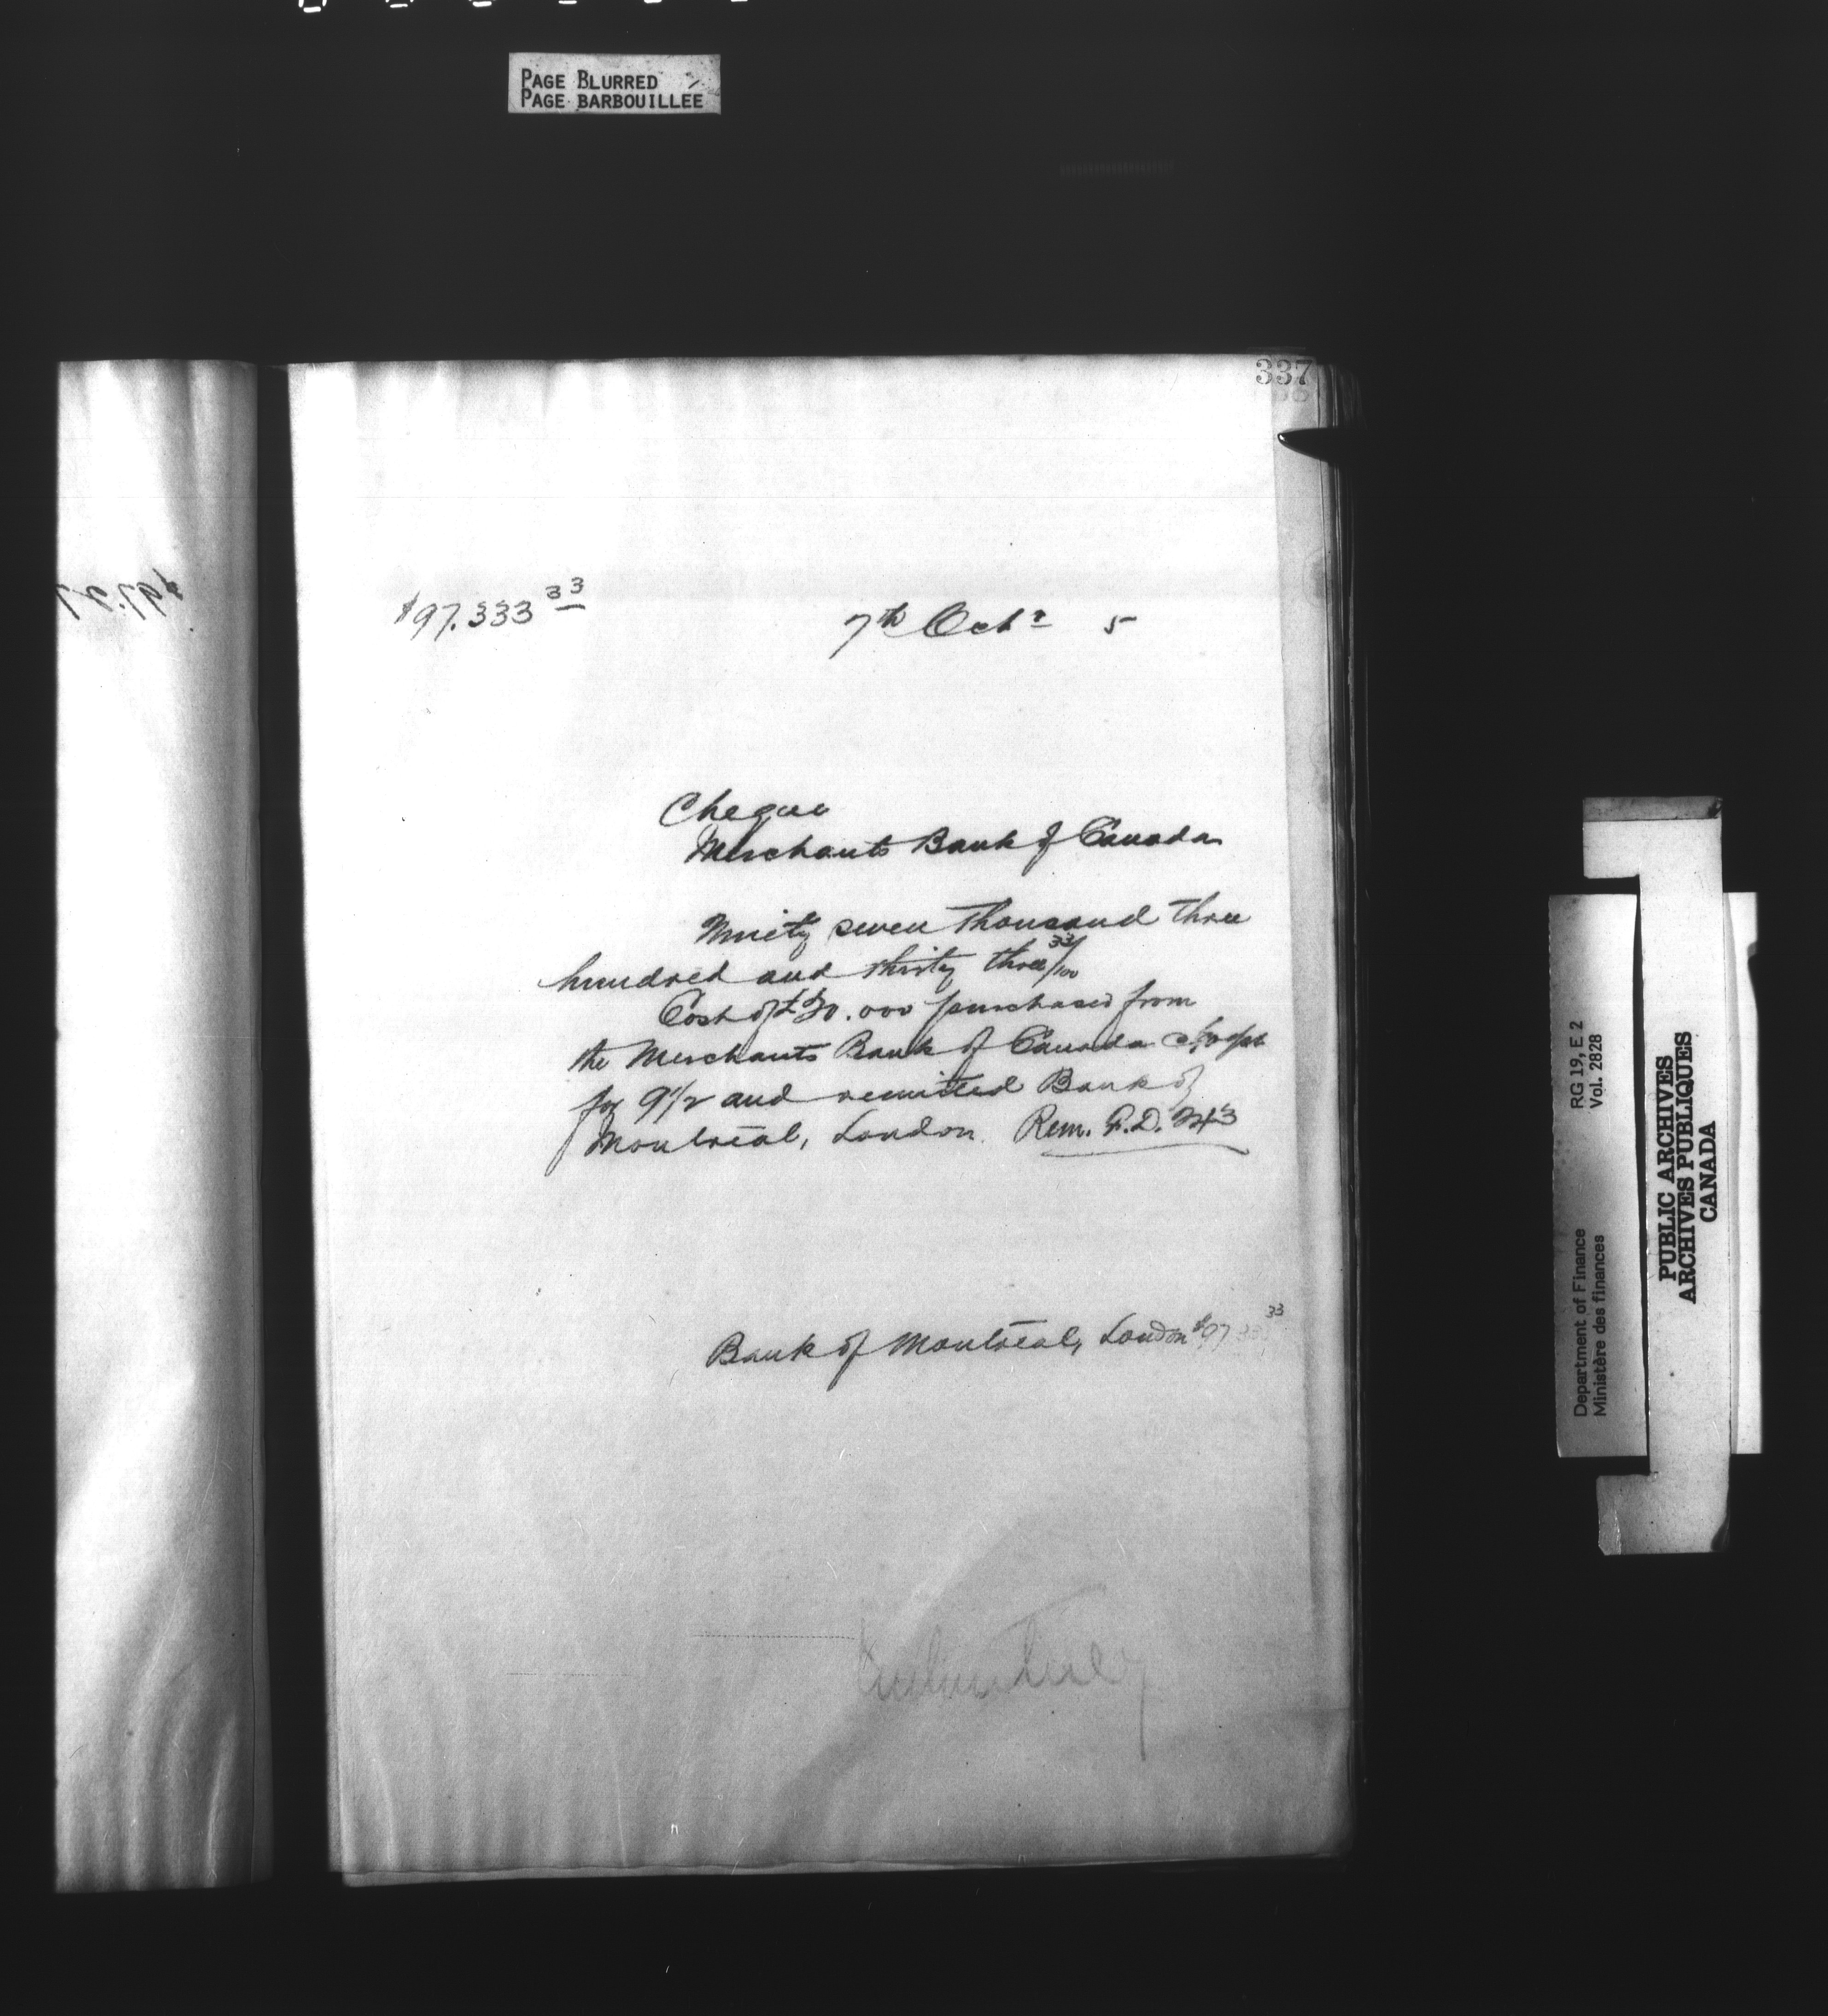 PAGE BLURRED
PAGE BARBOUILLEE
337
$97.333 33
7th Octr 5
Cheque
Merchants Bank of Canada
Ninety seven thousand three
hundred and thirty three 33/100
Cost of £20.000 purchased from
the Merchants Bank of Canada
for 9 1/2 and remitted Bank of
Montreal, London. Rem. F.D. 243
Bank of Montreal, London $97 333 33
Department of Finance RG 19, E 2
Ministère des finances Vol. 2828
PUBLIC ARCHIVES
ARCHIVES PUBLIQUES
CANADA